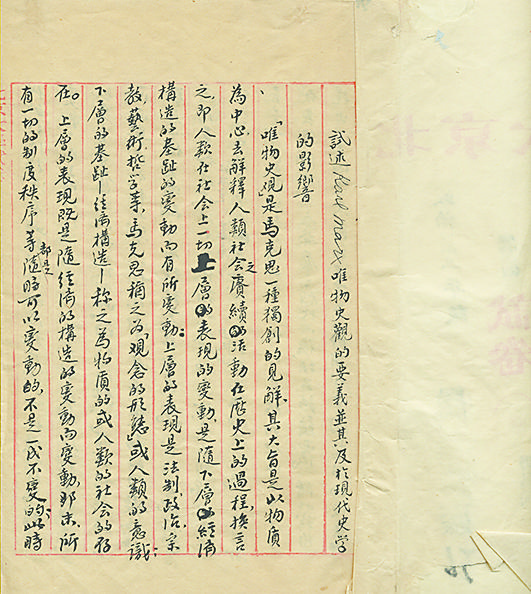 試述 Karl Marx 唯物史觀的要義並其及於現代史學
的影響
「唯物史觀」是馬克思一種獨創的見解,其大旨是以物質
為中心去解釋人類社會之賡續的活動在歷史上的過程,換言
之,即人類在社會上一切上層的表現的變動,是隨下層的經濟
構造的基趾的變動而有所變動;上層的表現是法制政治宗
教藝術哲学等,馬克思稱之為「觀念的形態」或人類的意識;
下層的基趾—經濟構造—称之為物质的或人類的社會的存
在。上層的表現既是隨經濟的構造的變動而變動,那末,所
有一切的制度秩序等都是隨時可以變動的,不是一成不變的;此時